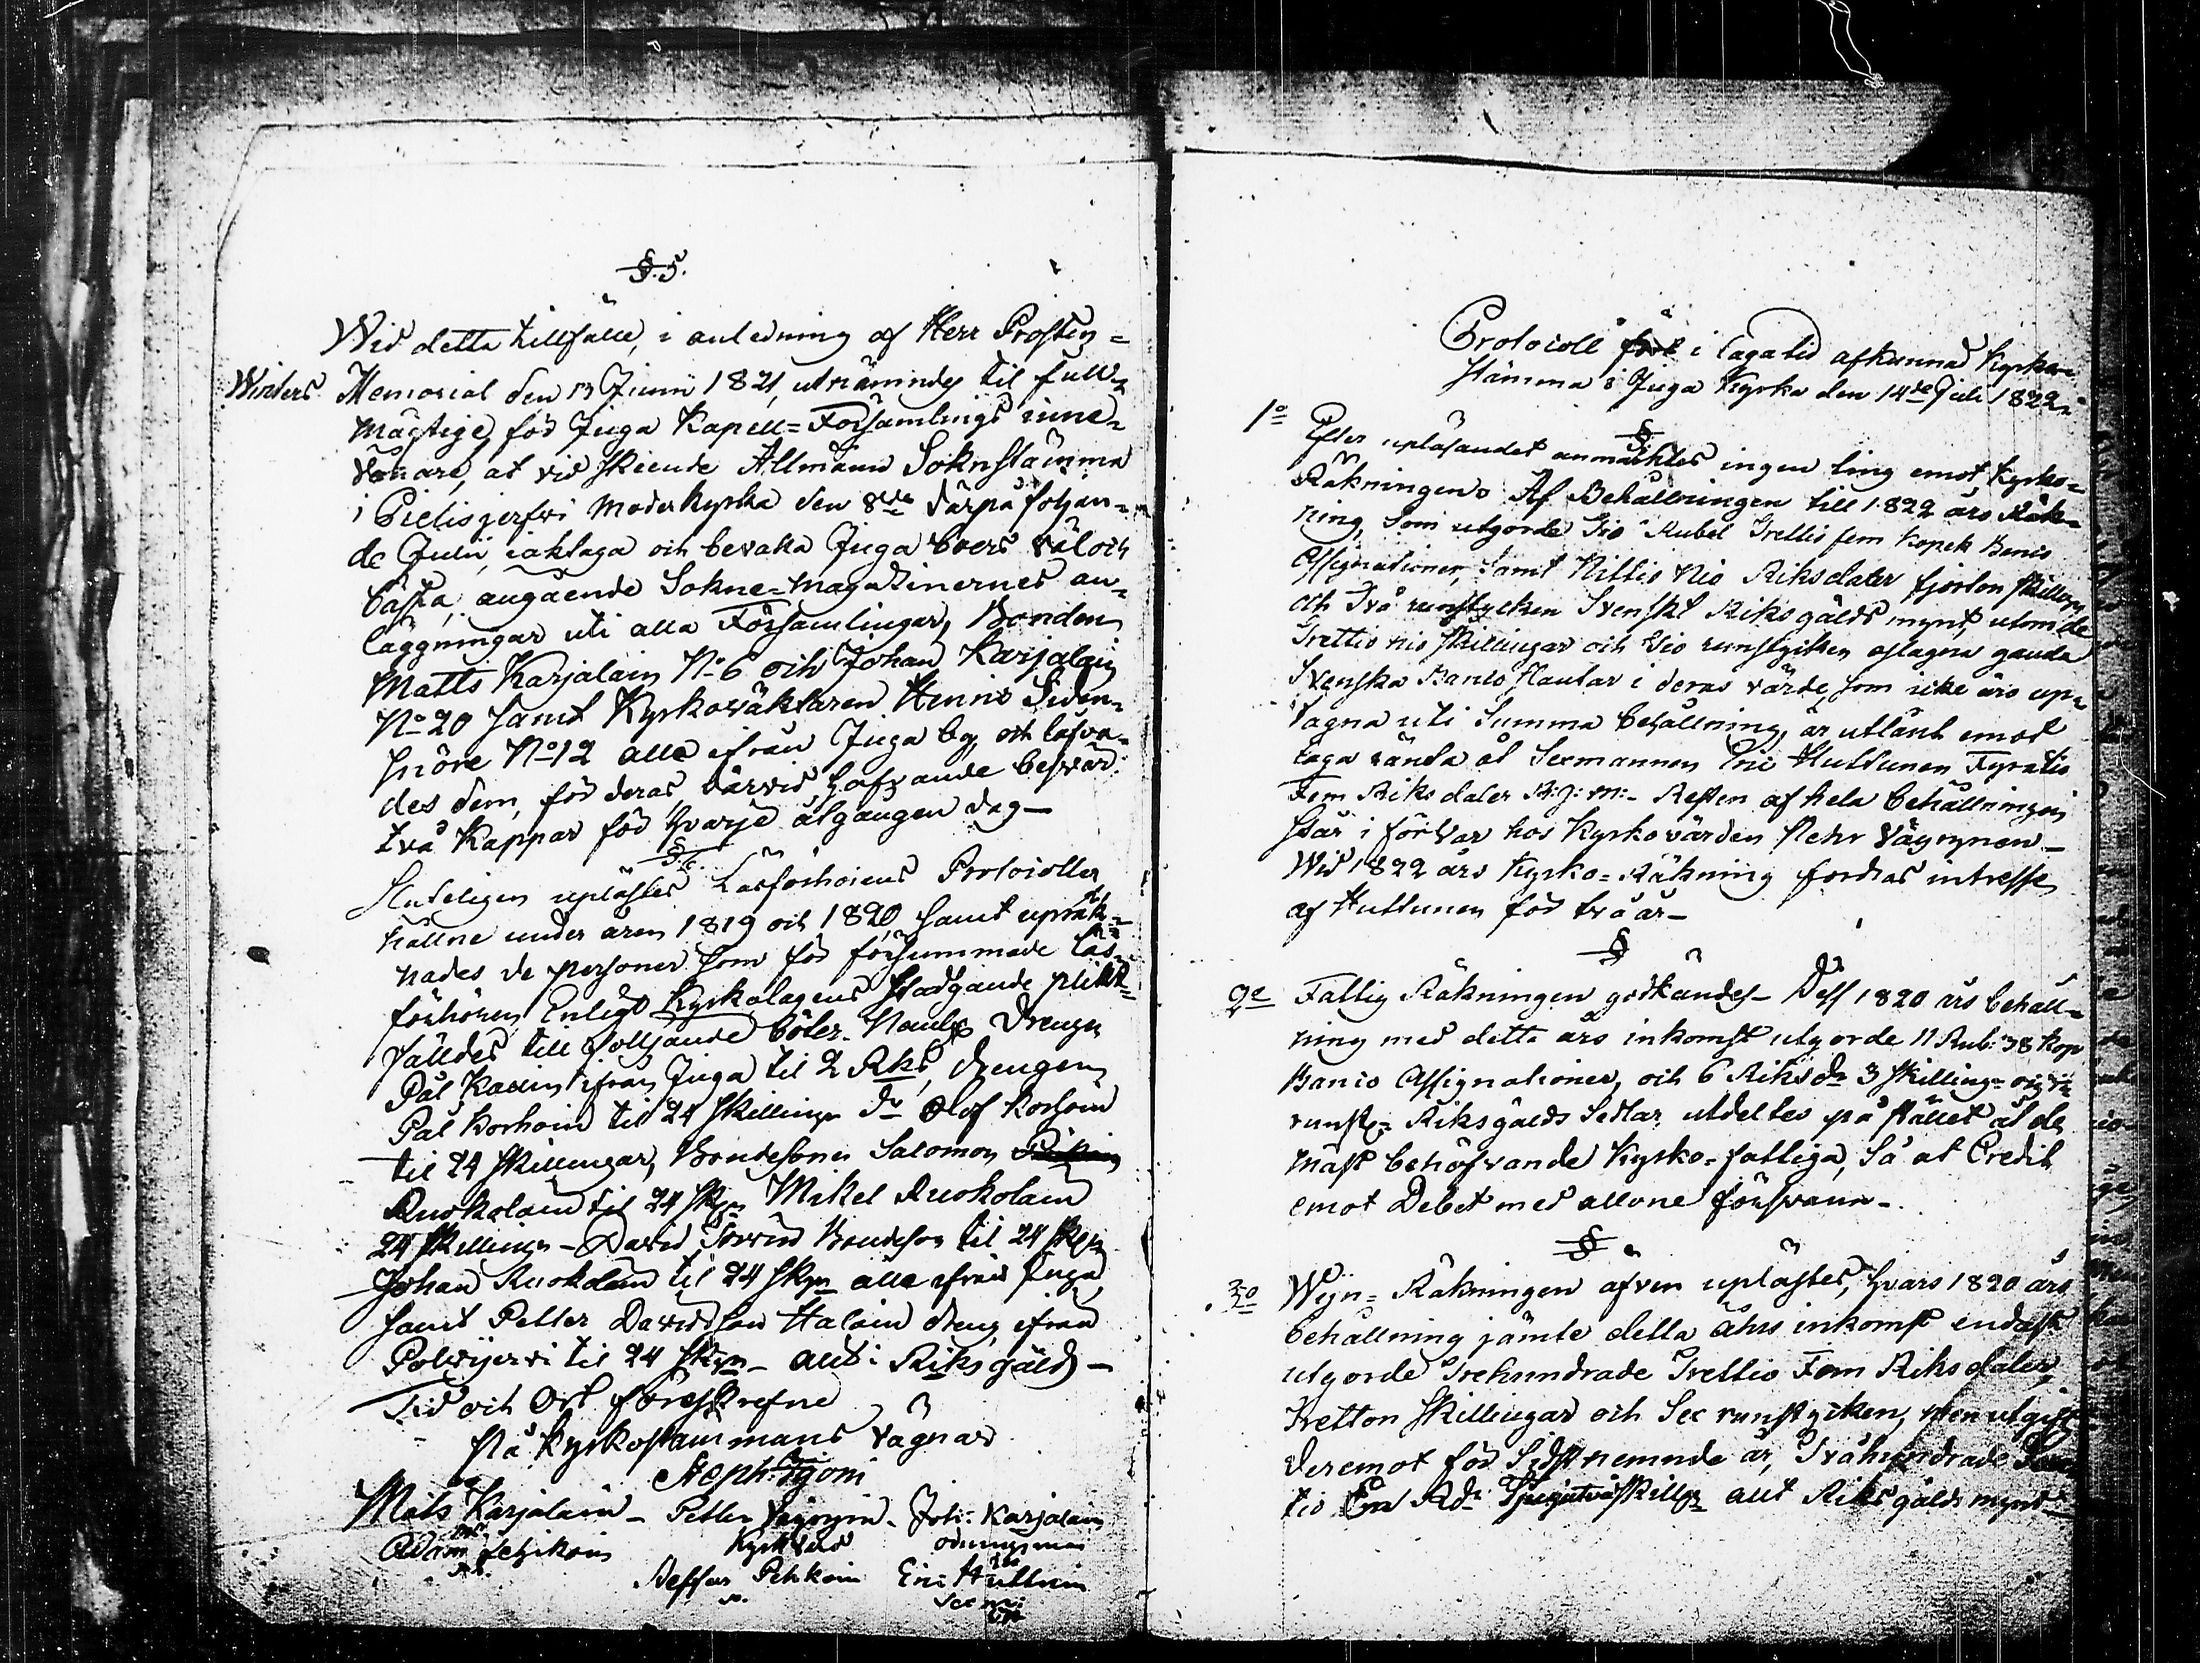 §. 5.
Wid detta tillfälle, i anledning af Herr Prosten=
Winters Memorial den 13 Junii 1821, utnämndes til full=
mägtige för Juga Kapell=Församlings inne=
vånare, at vid skeende Allmän Soknstämma
i Pielisjerfvi Moderkyrka den 8de därpå följan=
de Julii, iakttaga och bevaka Juga boers väl och
bästa, angående Sokne=Magazinernes an=
läggningar uti alla Församlingar, Bonden
Matts Karjalain No 6 och Johan Karjalain
No 20 samt Kyrkoväktaren Henric Siden=
snöre No 12 alla ifrån Juga by, och lofva=
des dem, för deras, därvid, hafvande besvär
två Kappar för hvarje åtgången dag—
§ 6.
Sluteligen uplästes Läsförhörens Protocoller
hållne under åren 1819 och 1820, samt upräk=
nades de personer som för försummade läs=
förhören, Enligt Kyrkolagens stadgande plikt=
fälldes till följande böter. Drengen
Pål ifrån Juga til 2 Rks, drengen
Pål Korhoin til 24 skillingr do Olof Korhoin
til 24 skillingar, Bondesonen Salomon
Ruokolain til 24 skgr Mikel Ruokolain
24 skillingr – David Bondeson til 24 skgr
Johan Ruokolain til 24 skgr alla ifrån Juga,
samt Petter Davidson Halain dreng ifrån
Polvijervi til 24 skgr – allt i Riksgäld –
Tid och Ort föreskrefne
På Kyrkostämmans vägnar
Steph:
Mats Karjalain – Petter Väyryin – Joh: Karjalain
Adam Kyrkvärd
Steffan Pehkoin Eric Huttuin
Sexm:
Protocoll fört i laga tid afkunnad Kyrko=
stämma i Juga Kyrka den 14de Juli 1822.
§
1o Efter upläsandet anmärktes ingen ting emot Kyrko=
Räkningen. Af Behållningen till 1822 års Räk=
ning, som utgorde Tio Rubel Trettio fem Kopek Banco
Assignationer, samt Nittio Nio Riksdaler fjorton skillingr
och Två runstycken Svenskt Riksgälds mynt, utom de
Trettio nio skillingar och Tio runstycken aflagna gamla
Svenska Banco Slantar i deras värde, som icke äro up=
tagna uti Summa behållning, är utlånt emot
laga ränta åt Sexmannen Eric Huttunen Fyratio
Fem Riksdaler R: g: m: – Resten af hela behållningen
står i förvar hos Kyrkovärden Pehr Väyrynen –
Wid 1822 års Kyrko=Räkning fordras intresse
af Huttunen för två år –
§
2o Fattig Räkningen godkändes – Dess 1820 års behåll=
ning med detta års inkomst utgorde 11 Rub: 38 Kop
Banco Assignationer, och 6 Riksdr 3 skilling
runst:r Riksgälds Sedlar, utdeltes på stället åt de
mäst behöfvande Kyrko=fattiga, Så at Credit
emot Debet med allone försvann –
§
3o Wijn=Räkningen äfven uplästes, hvars 1820 års
behållning jämte detta åhrs inkomst endast
utgorde Trehundrade Trettio Fem Riksdaler,
Tretton skillingar och Sex runstycken, men utgift
deremot för Sidstnemnde år, Tvåhundrade
tio Rdr Tjugutvå skillgr allt Riksgälds mynt